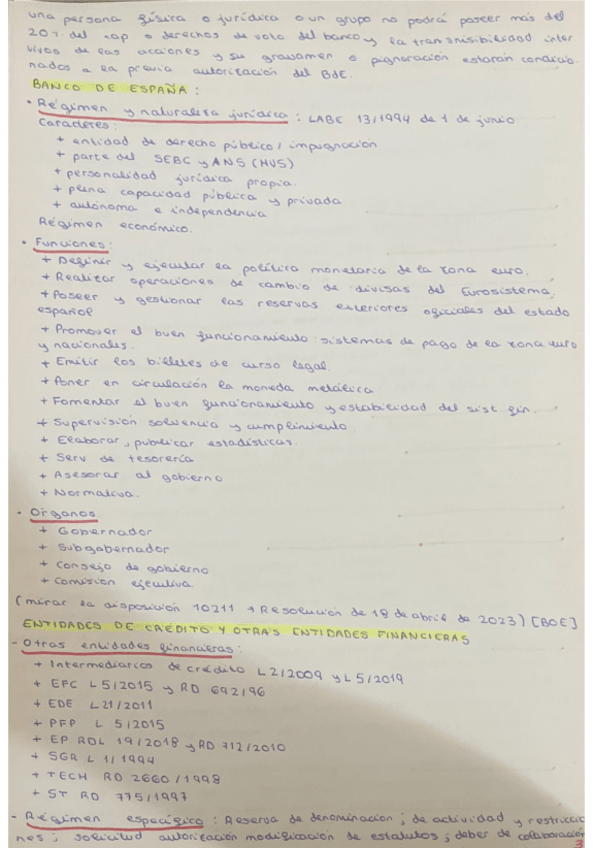 una persona física o jurídica o un grupo no podrá poseer más del
20% del cap o derechos de voto del banco y la transmisibilidad inter
vivos de las acciones y su gravamen o pignoración estarán condicio
nados a la previa autorización del BdE.
BANCO DE ESPAÑA:
• Régimen y naturaleza jurídica: LABE 13/1994 de 1 de junio
Caracteres:
+ entidad de derecho público / impugnación
+ parte del SEBC y ANS (MUS)
+ personalidad jurídica propia.
+ plena capacidad pública y privada
+ autónoma e independencia
Régimen económico.
• Funciones:
+ Definir y ejecutar la política monetaria de la zona euro.
+ Realizar operaciones de cambio de divisas del Eurosistema,
+ Poseer y gestionar las reservas exteriores oficiales del estado
español
+ Promover el buen funcionamiento: sistemas de pago de la zona euro
y nacionales.
+ Emitir los billetes de curso legal.
+ Poner en circulación la moneda metálica
+ Fomentar el buen funcionamiento y estabilidad del sist. fin.
+ Supervisión solvencia y cumplimiento
+ Elaborar, publicar estadísticas.
+ Serv de tesorería
+ Asesorar al gobierno
+ Normativa.
- Organos
+ Gobernador
+ Subgobernador
+ Consejo de gobierno
+ Comisión ejecutiva.
(mirar la disposición 10211 + Resolución de 18 de abril de 2023) [BOE]
ENTIDADES DE CRÉDITO Y OTRAS ENTIDADES FINANCIERAS
- Otras entidades financieras:
+ Intermediarios de crédito L 2/2009 y L 5/2019
+ EFC L 5/2015 y RD 692/96
+ EDE L 21/2011
+ PFP L 5/2015
+ EP RDL 19/2018 y RD 712/2010
+ SGR L 1/1994
+ TECH RD 2660/1998
+ ST RD 775/1997
- Régimen específico: Reserva de denominación; de actividad y restriccio
nes; solicitud autorización modificación de estatutos; deber de colaboración
3